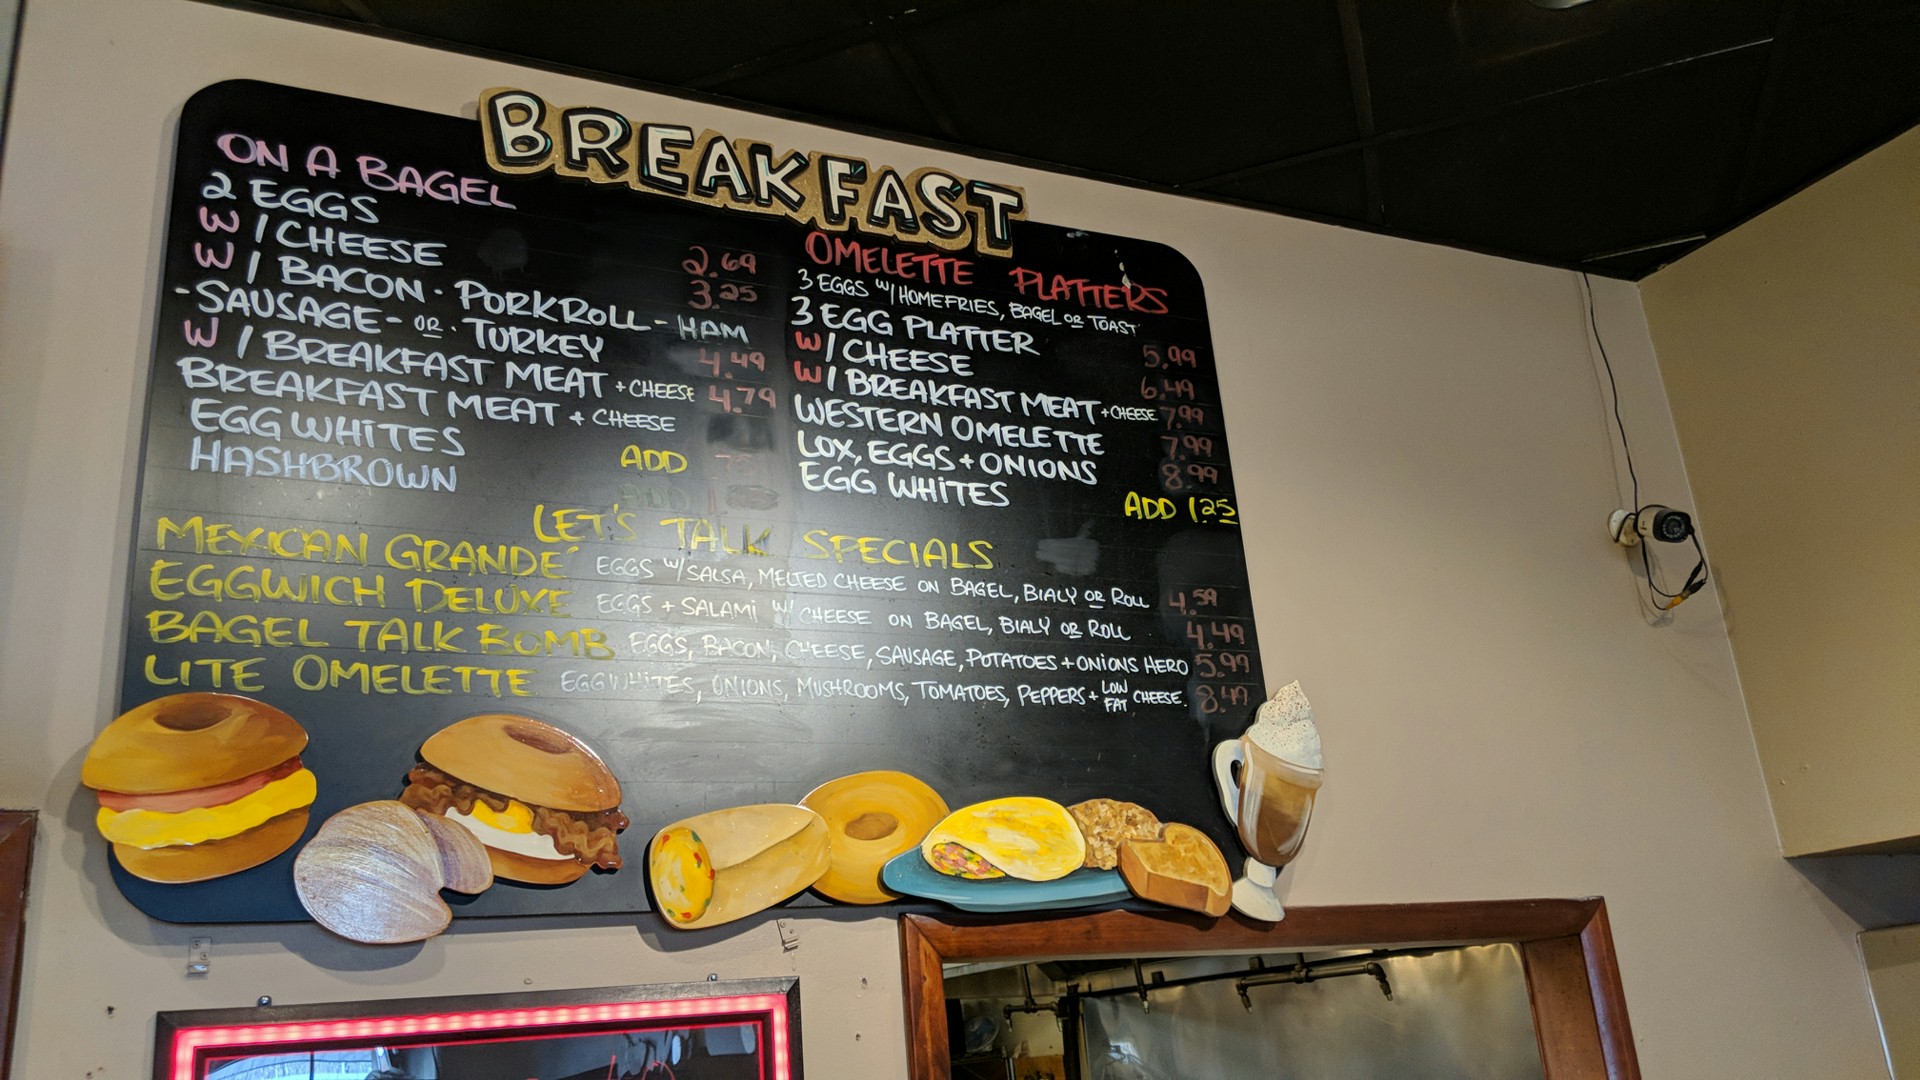 BREAKFAST
ON A BAGEL
2 EGGS 2.69
W/ CHEESE 3.25
W/ BACON · PORKROLL - HAM
- SAUSAGE - OR · TURKEY 4.49
W/ BREAKFAST MEAT + CHEESE 4.79
BREAKFAST MEAT + CHEESE
EGG WHITES ADD
HASHBROWN ADD
OMELETTE PLATTERS
3 EGGS W/ HOMEFRIES, BAGEL OR TOAST
3 EGG PLATTER 5.99
W/ CHEESE 6.49
W/ BREAKFAST MEAT + CHEESE 7.99
WESTERN OMELETTE 7.99
LOX, EGGS + ONIONS 8.99
EGG WHITES ADD 1.25
LET'S TALK SPECIALS
MEXICAN GRANDÉ EGGS W/ SALSA, MELTED CHEESE ON BAGEL, BIALY OR ROLL 4.59
EGGWICH DELUXE EGGS + SALAMI W/ CHEESE ON BAGEL, BIALY OR ROLL 4.49
BAGEL TALK BOMB EGGS, BACON, CHEESE, SAUSAGE, POTATOES + ONIONS HERO 5.99
LITE OMELETTE EGGWHITES, ONIONS, MUSHROOMS, TOMATOES, PEPPERS + LOW FAT CHEESE. 8.49